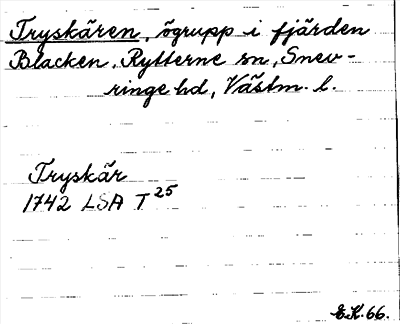 Tryskären, ögrupp i fjärden
Blacken. Rytterne sn, Snev-
ringe hd, Västm. l.
Tryskär
1742 LSA T 25
E.K. 66.